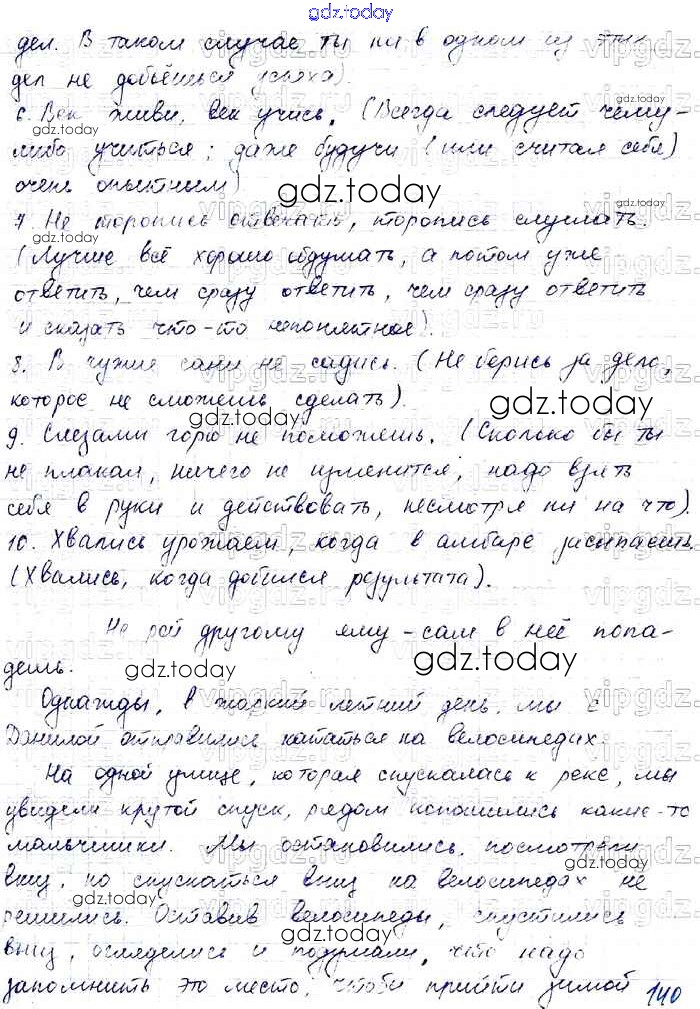 gdz.today
дел. В таком случае ты ни в одном из этих
дел не добьёшься успеха).
6. Век живи, век учись. (Всегда следует чему-
либо учиться; даже будучи (или считая себя)
очень опытным)
7. Не торопись отвечать, торопись слушать.
(Лучше всё хорошо обдумать, а потом уже
ответить, чем сразу ответить, чем сразу ответить
и сказать что-то непонятное).
8. В чужие сани не садись. (Не берись за дело,
которое не сможешь сделать).
9. Слезами горю не поможешь. (Сколько бы ты
не плакал, ничего не изменится, надо взять
себя в руки и действовать, несмотря ни на что).
10. Хвались урожаем, когда в амбаре засыпаешь
(Хвались, когда добился результата).
Не рой другому яму - сам в неё попа-
дёшь.
Однажды, в жаркий летний день, мы с
Данилой отправились кататься на велосипедах.
На одной улице, которая спускалась к реке, мы
увидели крутой спуск, рядом копошились какие-то
мальчишки. Мы остановились, посмотрели
вниз, но спускаться вниз на велосипедах не
решились. Оставив велосипеды, спустились
вниз, огляделись и подумали, что надо
запомнить это место, чтобы прийти зимой
140